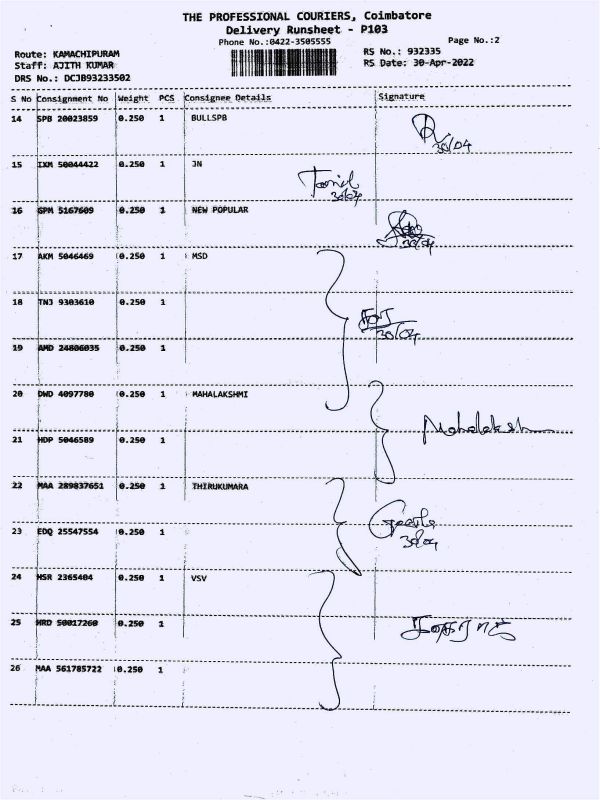 THE PROFESSIONAL COURIERS, Coimbatore
Delivery Runsheet - P103
Phone No.:0422-3505555
Page No.:2
Route: KAMACHIPURAM
RS No.: 932335
Staff: AJITH KUMAR
RS Date: 30-Apr-2022
DRS No.: DCJB93233502
S No Consignment No Weight PCS Consignee Details Signature
14 SPB 20023859 0.250 1 BULLSPB
30/04
15 IXM 50044422 0.250 1 JN
Tamil
30/04
16 GPM 5167609 0.250 1 NEW POPULAR
30/04
17 AKM 5046469 0.250 1 MSD
18 TNJ 9303610 0.250 1
30/04
19 AMD 24806035 0.250 1
20 DWD 4097780 0.250 1 MAHALAKSHMI
21 HDP 5046589 0.250 1
22 MAA 289837651 0.250 1 THIRUKUMARA
23 EDQ 25547554 0.250 1
30/04
24 HSR 2365404 0.250 1 VSV
25 HRD 50017260 0.250 1
26 MAA 561785722 0.250 1